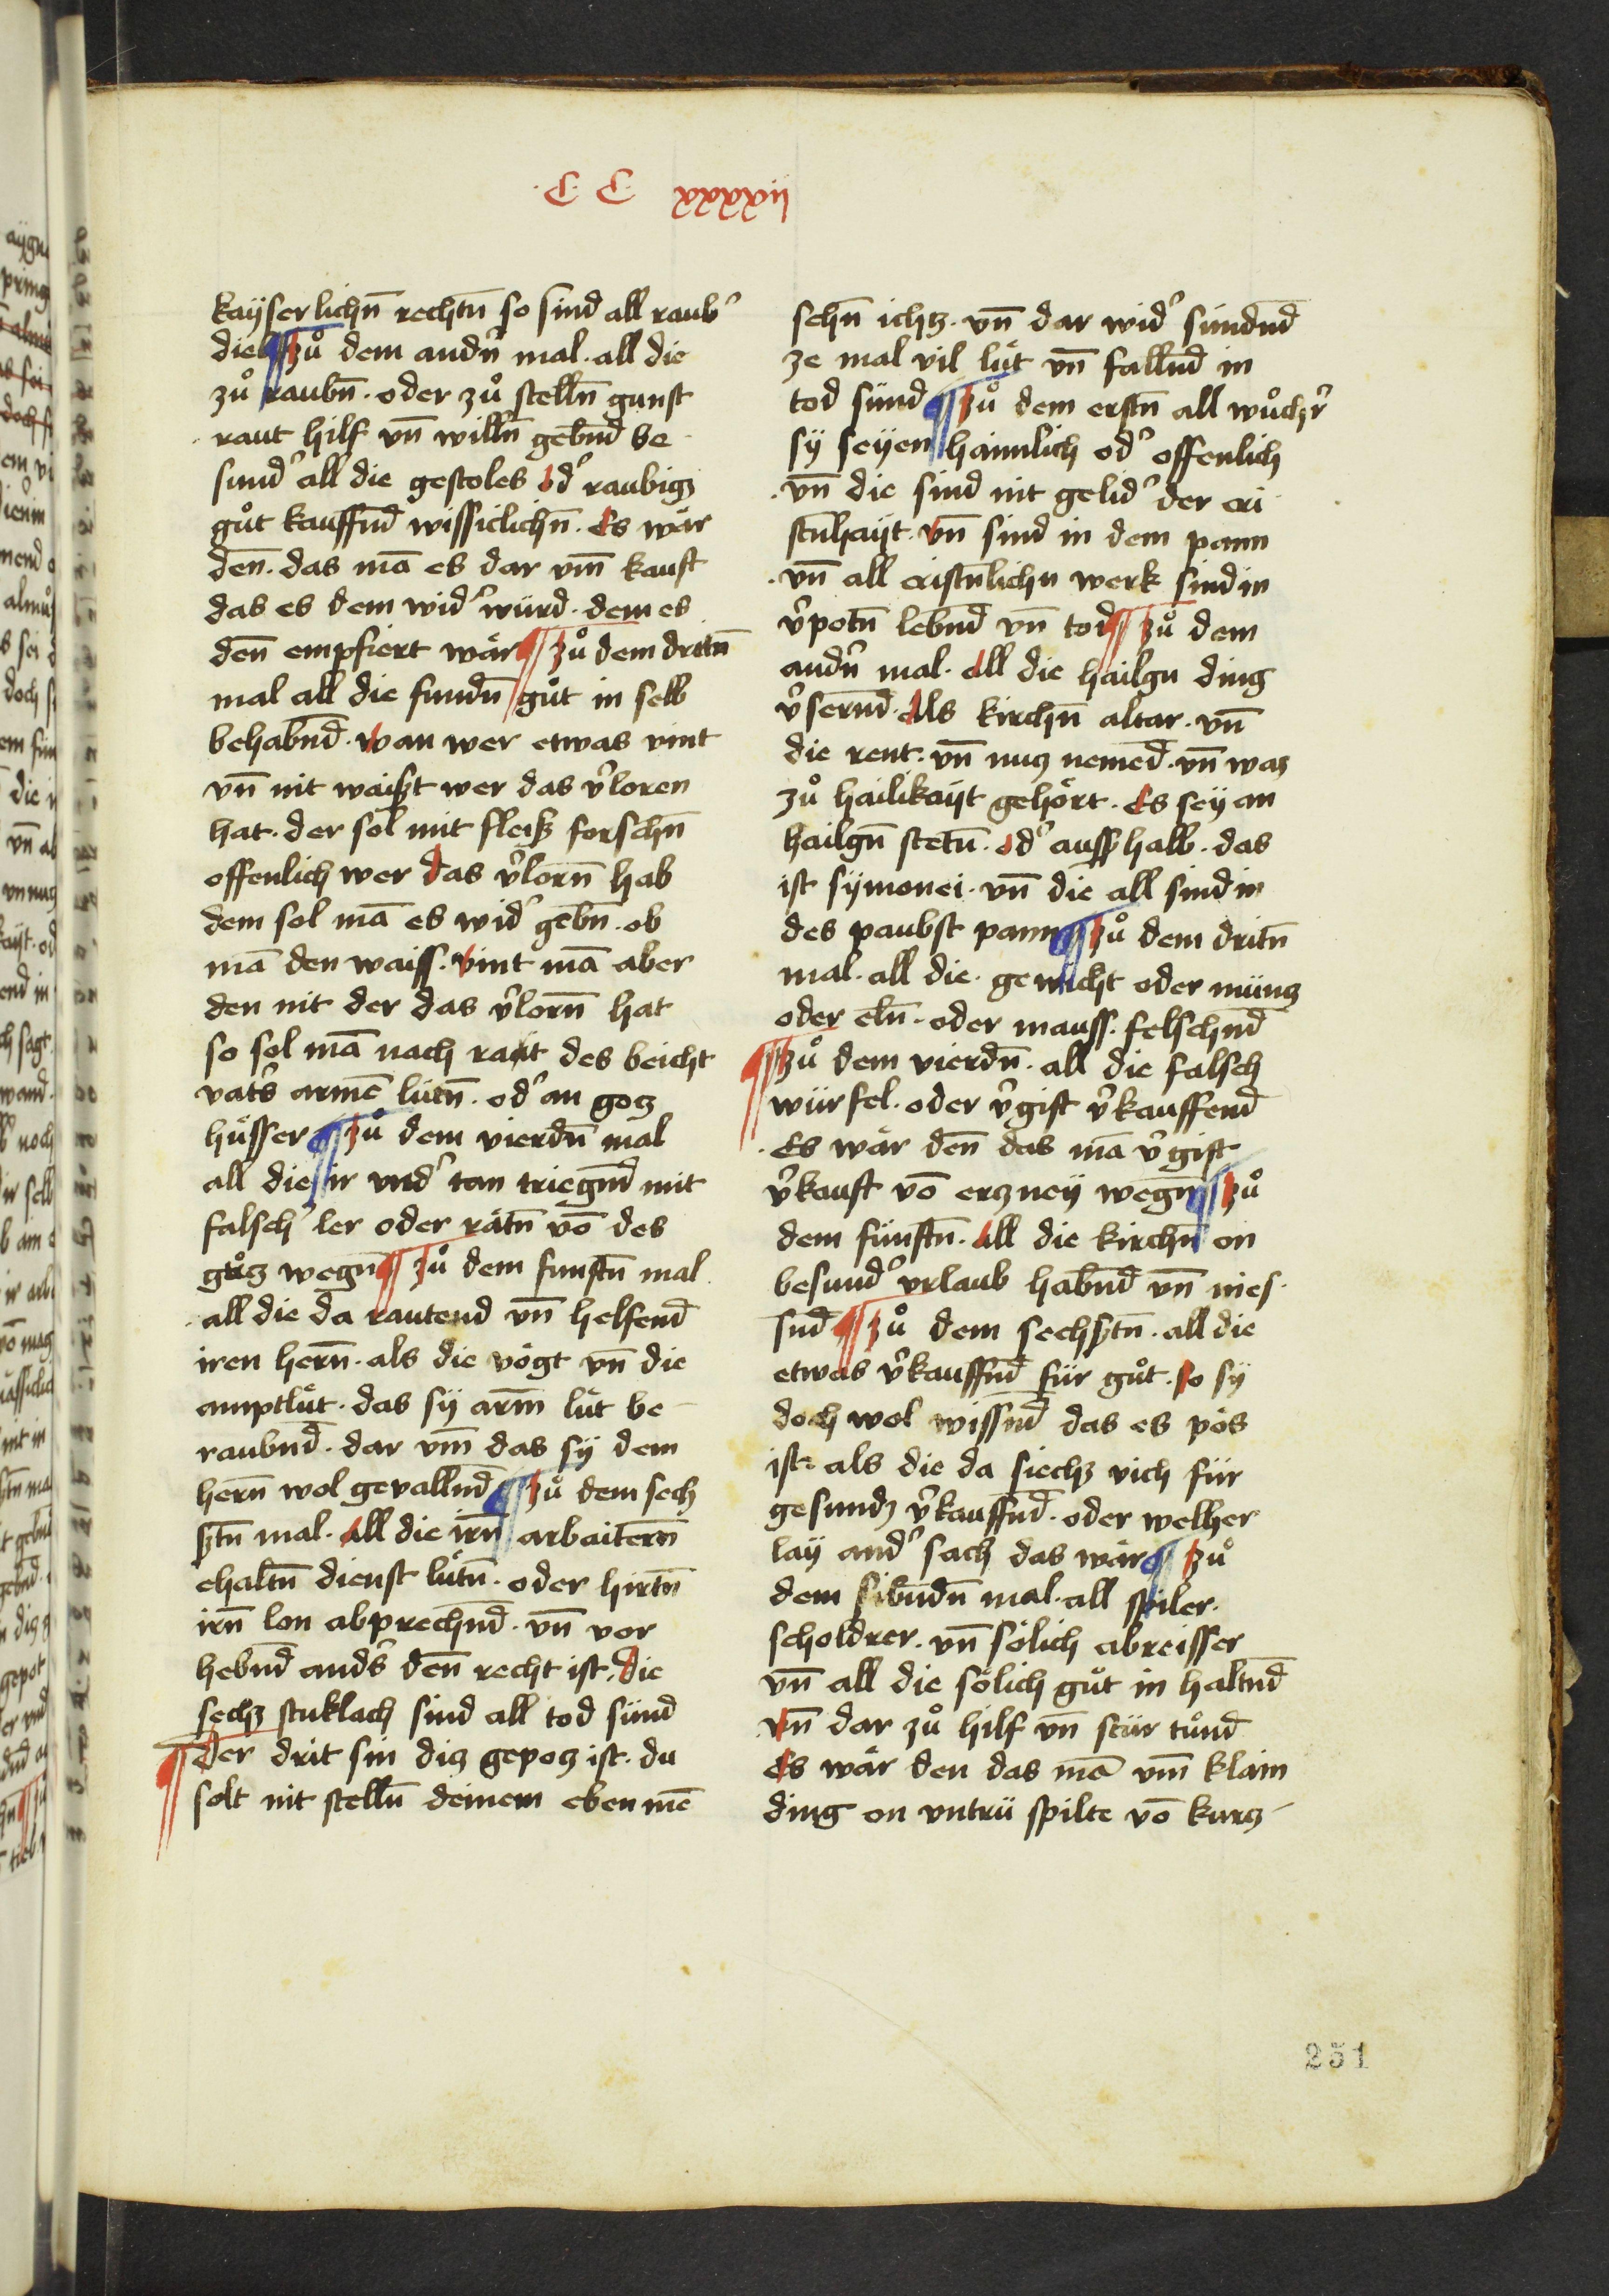 ·C· C· xxxxxij
kaÿserlichn̄ rechtn̄ so sind all raubʾ
dieb ¶ Zů dem andn̄ʾ mal · all die
zů raubn̄ · oder zů stelln̄ gunst
raut hilf vn̄ willn̄ gebn̄d be
sundʾ all die gestoles odʾ raubigz
gůt kauffn̄d wissiclichn̄ · Es wär
den̄ · das mā es dar vm̄ kauft
das es dem widʾ würd · dem es
den̄ empfiert wär ¶ Zů dem dritn̄
mal all die fundn̄ gůt in selb
behabn̄d · wan wer etwas vint
vn̄ nit waißt wer das vʾloren
hat · der sol mit fleiß forschn̄
offenlich wer das vʾlorn̄ hab
dem sol mā es widʾ gebn̄ · ob
mā den waiss · vint mā aber
den nit der das vʾlorn̄ hat
so sol mā nach raut des beicht
vatʾs armē lütn̄ · odʾ an gotz
hüsser ¶ Zů dem vierdn̄ mal
all die ir vndʾ tan triegn̄d mit
falschʾ ler oder rätn̄ vō des
gůtz wegn̄ ¶ Zů dem funftn̄ mal
all die da rautend vn̄ helfend
iren hern̄ · als die vögt vn̄ die
amptlüt · das sÿ arm̄ lüt be
raubn̄d · dar vm̄ das sÿ dem
hern̄ wol gevalln̄d ¶ Zů dem sech
ßtn̄ mal · All die irn̄ arbaitern̄
ehaltn̄ dienst lütn̄ · oder hirtn̄
irn̄ lon abprechn̄d · vn̄ vor
hebn̄d andʾs den̄ recht ist · die
sechz stuklach sind all tod sünd
¶ Der drit sin diz gepotz ist · du
solt nit stelln̄ deinem eben mē
schn̄ ichtz · vn̄ dar widʾ sündn̄d
ze mal vil lüt vn̄ falln̄d in
tod sünd ¶ Zů dem erstn̄ all wůchrʾ
sÿ seÿen haimlich odʾ offenlich
vn̄ die sind nit gelidʾ der cri
stn̄haÿt · vn̄ sind in dem pann
vn̄ all cristn̄lichn werk sind in
vʾpotn̄ lebn̄d vn̄ tod ¶ Zů dem
andn̄ʾ mal · All die hailgn ding
vʾsern̄d · Als kirchn̄ altar · vn̄
die rent · vn̄ nutz nemed̄ · vn̄ waz
zů hailikaÿt gehört · Es seÿ an
hailgn̄ stetn̄ · odʾ aussʾhalb · das
ist sÿmonei · vn̄ die all sind in
des paubst pann ¶ Zů dem dritn̄
mal · all die · gewicht oder müntz
oder eln̄ · oder mauss · felschn̄d
¶ Zů dem vierdn̄ · all die falsch
würfel · oder vʾgift vʾkauffend̄
Es wär den̄ das mā vʾgift
vʾkauft vō ertzneÿ wegn̄ ¶ Zů
dem fünftn̄ · All die kirchn̄ on
besundʾ vrlaub habn̄d vn̄ nies
sn̄d ¶ Zů dem sechßtn̄ · all die
etwas vʾkauffn̄d für gůt · so sÿ
doch wol wissn̄d das es pös
ist · als die da siechz vich für
gesundz vʾkauffn̄d · oder welher
laÿ andʾ sach das wär ¶ Zů
dem sibn̄dn̄ mal · all spiler ·
scholdrer · vn̄ sölich abreisser
vn̄ all die sölich gůt in haltn̄d
vn̄ dar zů hilf vn̄ stür tůnd
Es wär den das mā vm̄ klain
ding on vntrü spilte vō kurtz
251